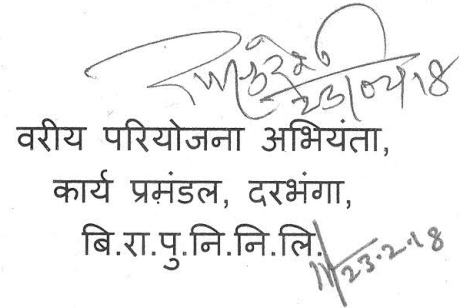 23/02/18
वरीय परियोजना अभियंता,
कार्य प्रमंडल, दरभंगा,
बि.रा.पु.नि.नि.लि.
23.2.18